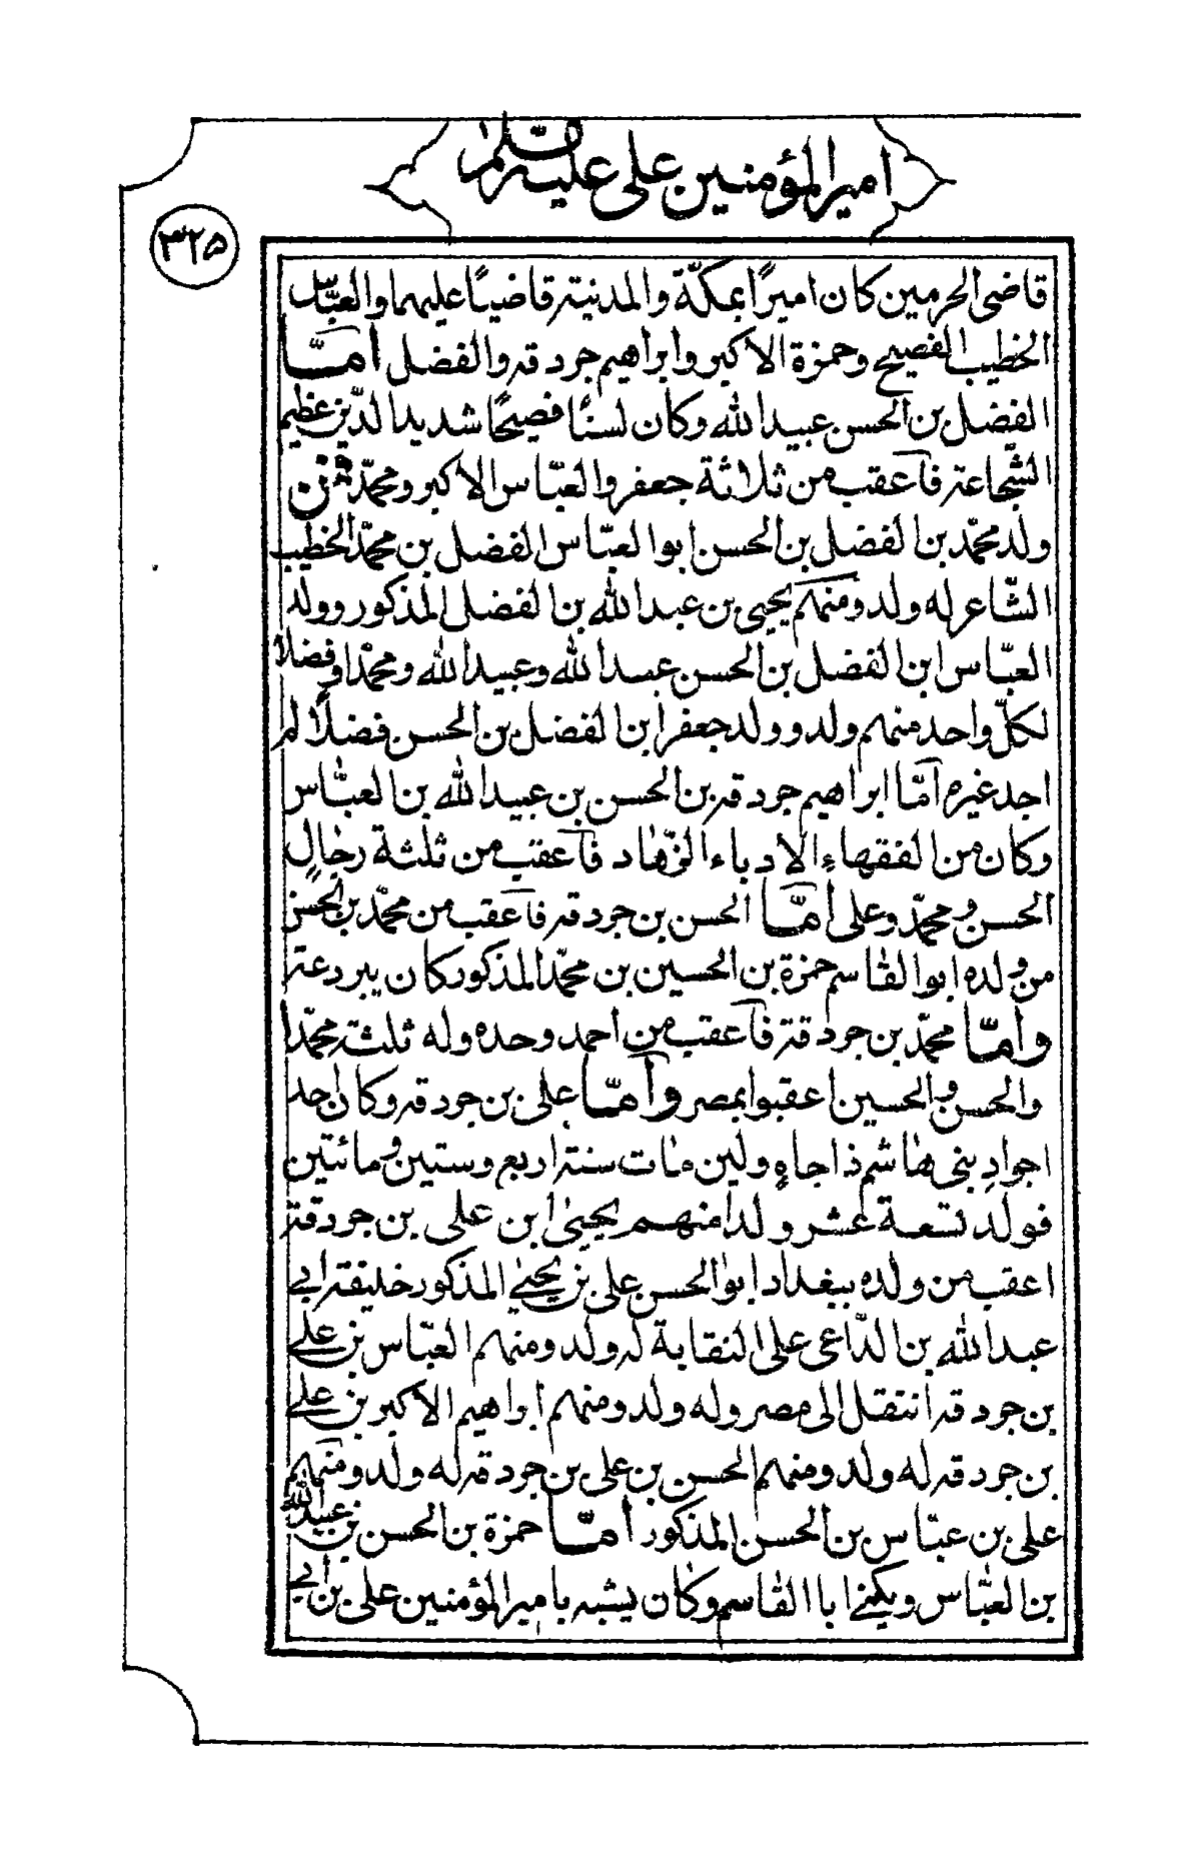 امير المؤمنين على عليه السلام
۳۲۵
قاضى الحرمين كان اميرًا بمكّة والمدينة قاضيًا عليهما والعبّاس
الخطيب الفصيح وحمزة الاكبر وابراهيم جردقة والفضل أمّا
الفضل بن الحسن عبيد الله وكان لسنًا فصيحًا شديد الدّين عظيم
الشّجاعة فأعقب من ثلاثة جعفر والعبّاس الاكبر ومحمّد فمن
ولد محمّد بن الفضل بن الحسن ابو العبّاس الفضل بن محمّد الخطيب
الشّاعر له ولد ومنهم يحيى بن عبد الله بن الفضل المذكور وولد
العبّاس ابن الفضل بن الحسن عبد الله وعبيد الله ومحمّدا وفضلاً
لكلّ واحد منهم ولد وولد جعفر ابن الفضل بن الحسن فضلاً لم
اجد غيره أمّا ابراهيم جردقة بن الحسن بن عبيد الله بن العبّاس
وكان من الفقهاءِ الادباء الزّهاد فأعقب من ثلثة رجالٍ
الحسن ومحمّد وعلى أمّا الحسن بن جردقة فأعقب من محمّد بن الحسن
من ولده ابو القاسم حمزة بن الحسين بن محمّد المذكور كان ببردعة
وأمّا محمّد بن جردقة فأعقب من احمد وحده وله ثلثة محمّدا
والحسن والحسين اعقبوا بمصر وأمّا على بن جردقة وكان احد
اجوادِ بنى هاشم ذا جاهٍ ولين مات سنة اربع وستين ومائتين
فولد تسعة عشر ولدا منهم يحيىٰ ابن على بن جردقة
اعقب من ولده ببغداد ابو الحسن على بن يحيى المذكور خليفة ابى
عبد الله بن الدّاعى على النقابة له ولد ومنهم العبّاس بن على
بن جردقة انتقل الى مصر وله ولد ومنهم ابراهيم الاكبر بن على
بن جردقة له ولد ومنهم الحسن بن على بن جردقة له ولد ومنهم
على بن عبّاس بن الحسن المذكور أمّا حمزة بن الحسن بن عبيد الله
بن العبّاس ويكنى ابا القاسم وكان يشبه بامير المؤمنين على بن ابى